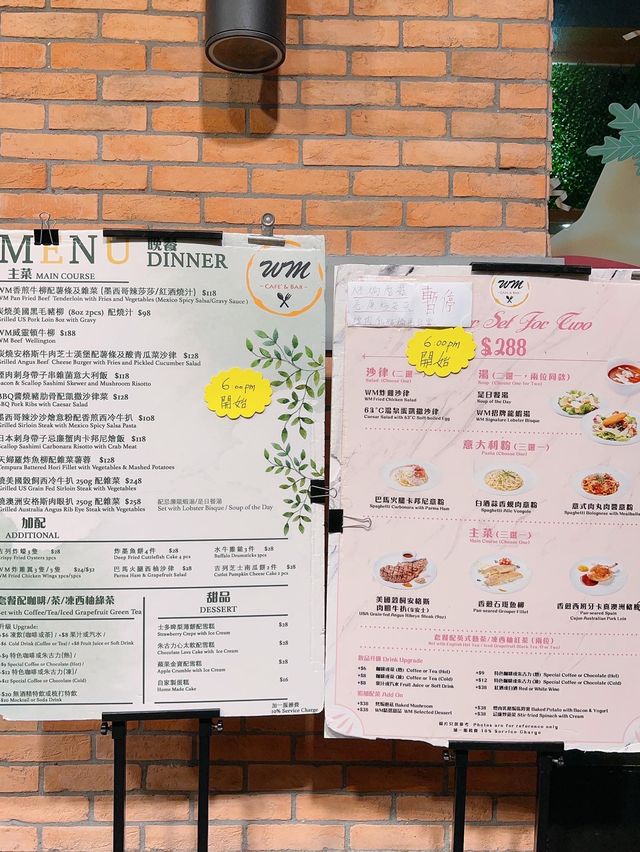 MENU 晚餐 DINNER
主菜 MAIN COURSE
WM
CAFE & BAR
WM香煎牛柳配薯條及雜菜 (墨西哥辣莎莎/紅酒燒汁) $118
WM Pan Fried Beef Tenderloin with Fries and Vegetables (Mexico Spicy Salsa/Gravy Sauce)
炭燒美國黑毛豬柳 (8oz 2pcs) 配燒汁 $98
Grilled US Pork Loin 8oz with Gravy
WM威靈頓牛柳 $188
WM Beef Wellington
炭燒安格斯牛肉芝士漢堡配薯條及酸青瓜菜沙律 $128
Grilled Angus Beef Cheese Burger with Fries and Pickled Cucumber Salad
煙肉刺身帶子串雜菌意大利飯 $118
Bacon & Scallop Sashimi Skewer and Mushroom Risotto
BBQ醬燒豬肋骨配凱撒沙律菜 $128
BBQ Pork Ribs with Caesar Salad
墨西哥辣沙沙燴意粉配香煎西冷牛扒 $108
Grilled Sirloin Steak with Mexico Spicy Salsa Pasta
日本刺身帶子忌廉蟹肉卡邦尼燴飯 $118
Scallop Sashimi Carbonara Risotto with Crab Meat
天婦羅炸魚柳配雜菜薯蓉 $128
Tempura Battered Hori Fillet with Vegetables & Mashed Potatoes
燒美國穀飼西冷牛扒 250g 配雜菜 $248
Grilled US Grain Fed Sirloin Steak with Vegetables
燒澳洲安格斯肉眼扒 250g 配雜菜 $258
Grilled Australia Angus Rib Eye Steak with Vegetables
配忌廉龍蝦湯/是日餐湯
Set with Lobster Bisque / Soup of the Day
6:00pm
開始
加配
ADDITIONAL
吉列炸蠔3隻 $28
Crispy Fried Oysters 3pcs
炸墨魚餅4件 $28
Deep Fried Cuttlefish Cake 4 pcs
水牛雞鎚3件 $28
Buffalo Drumsticks 3pcs
WM炸雞翼3隻/5隻 $24/$32
WM Fried Chicken Wings 3pcs/5pcs
巴馬火腿西柚沙律 $28
Parma Ham & Grapefruit Salad
吉列芝士南瓜餅2件 $28
Cutlet Pumpkin Cheese Cake 2 pcs
套餐配咖啡/茶/凍西柚綠茶
Set with Coffee/Tea/Iced Grapefruit Green Tea
升級 Upgrade:
+$6 凍飲(咖啡或茶) / +$8 果汁或汽水 /
+$6 Cold Drink (Coffee or Tea) / +$8 Fruit Juice or Soft Drink
+$9 特色咖啡或朱古力(熱) /
+$9 Special Coffee or Chocolate (Hot) /
+$12 特色咖啡或朱古力(凍)/
+$12 Special Coffee or Chocolate (Cold)
+$20 無酒精特飲或梳打特飲
+$20 Mocktail or Soda Drink
甜品
DESSERT
士多啤梨薄餅配雪糕 $28
Strawberry Crepe with Ice Cream
朱古力心太軟配雪糕 $28
Chocolate Lava Cake with Ice Cream
蘋果金寶配雪糕 $28
Apple Crumble with Ice Cream
自家製蛋糕 $16
Home Made Cake
加一服務費
10% Service Charge
WM
CAFE & BAR
暫停
Set For Two
$288
6:00pm
開始
沙律 (二選一)
Salad (Choose One)
WM炸雞沙律
WM Fried Chicken Salad
63°C湯泵蛋凱撒沙律
Caesar Salad with 63°C Soft-boiled Egg
湯 (二選一，兩位同款)
Soup (Choose One for Two)
是日餐湯
Soup of the Day
WM招牌龍蝦湯
WM Signature Lobster Bisque
意大利粉 (三選一)
Pasta (Choose One)
巴馬火腿卡邦尼意粉
Spaghetti Carbonara with Parma Ham
白酒蒜香蜆肉意粉
Spaghetti Alle Vongole
意式肉丸肉醬意粉
Spaghetti Bolognese with Meatballs
主菜 (三選一)
Main Course (Choose One)
美國穀飼安格斯
肉眼牛扒 (8安士)
USA Grain-fed Angus Ribeye Steak (8oz)
香煎石斑魚柳
Pan-seared Grouper Fillet
香煎西班牙卡真澳洲豬扒
Pan-seared Spain
Cajun Australian Pork Loin
套餐配英式熱茶 / 凍西柚紅茶 (兩位)
Set with English Hot Tea / Iced Grapefruit Black Tea (For Two)
飲品升級 Drink Upgrade
+$6 咖啡或茶 (熱) Coffee or Tea (Hot)
+$8 咖啡或茶 (凍) Coffee or Tea (Cold)
+$8 果汁或汽水 Fruit Juice or Soft Drink
+$9 特色咖啡或朱古力 (熱) Special Coffee or Chocolate (Hot)
+$12 特色咖啡或朱古力 (凍) Special Coffee or Chocolate (Cold)
+$38 紅酒或白酒 Red or White Wine
追加配菜 Add On
+$38 焗釀蘑菇 Baked Mushroom
+$38 WM精選甜品 WM Selected Dessert
+$38 煙肉乳酪焗釀薯 Baked Potato with Bacon & Yogurt
+$38 忌廉炒菠菜 Stir-fried Spinach with Cream
圖片只供參考 Photos are for reference only
加一服務費 10% Service Charge